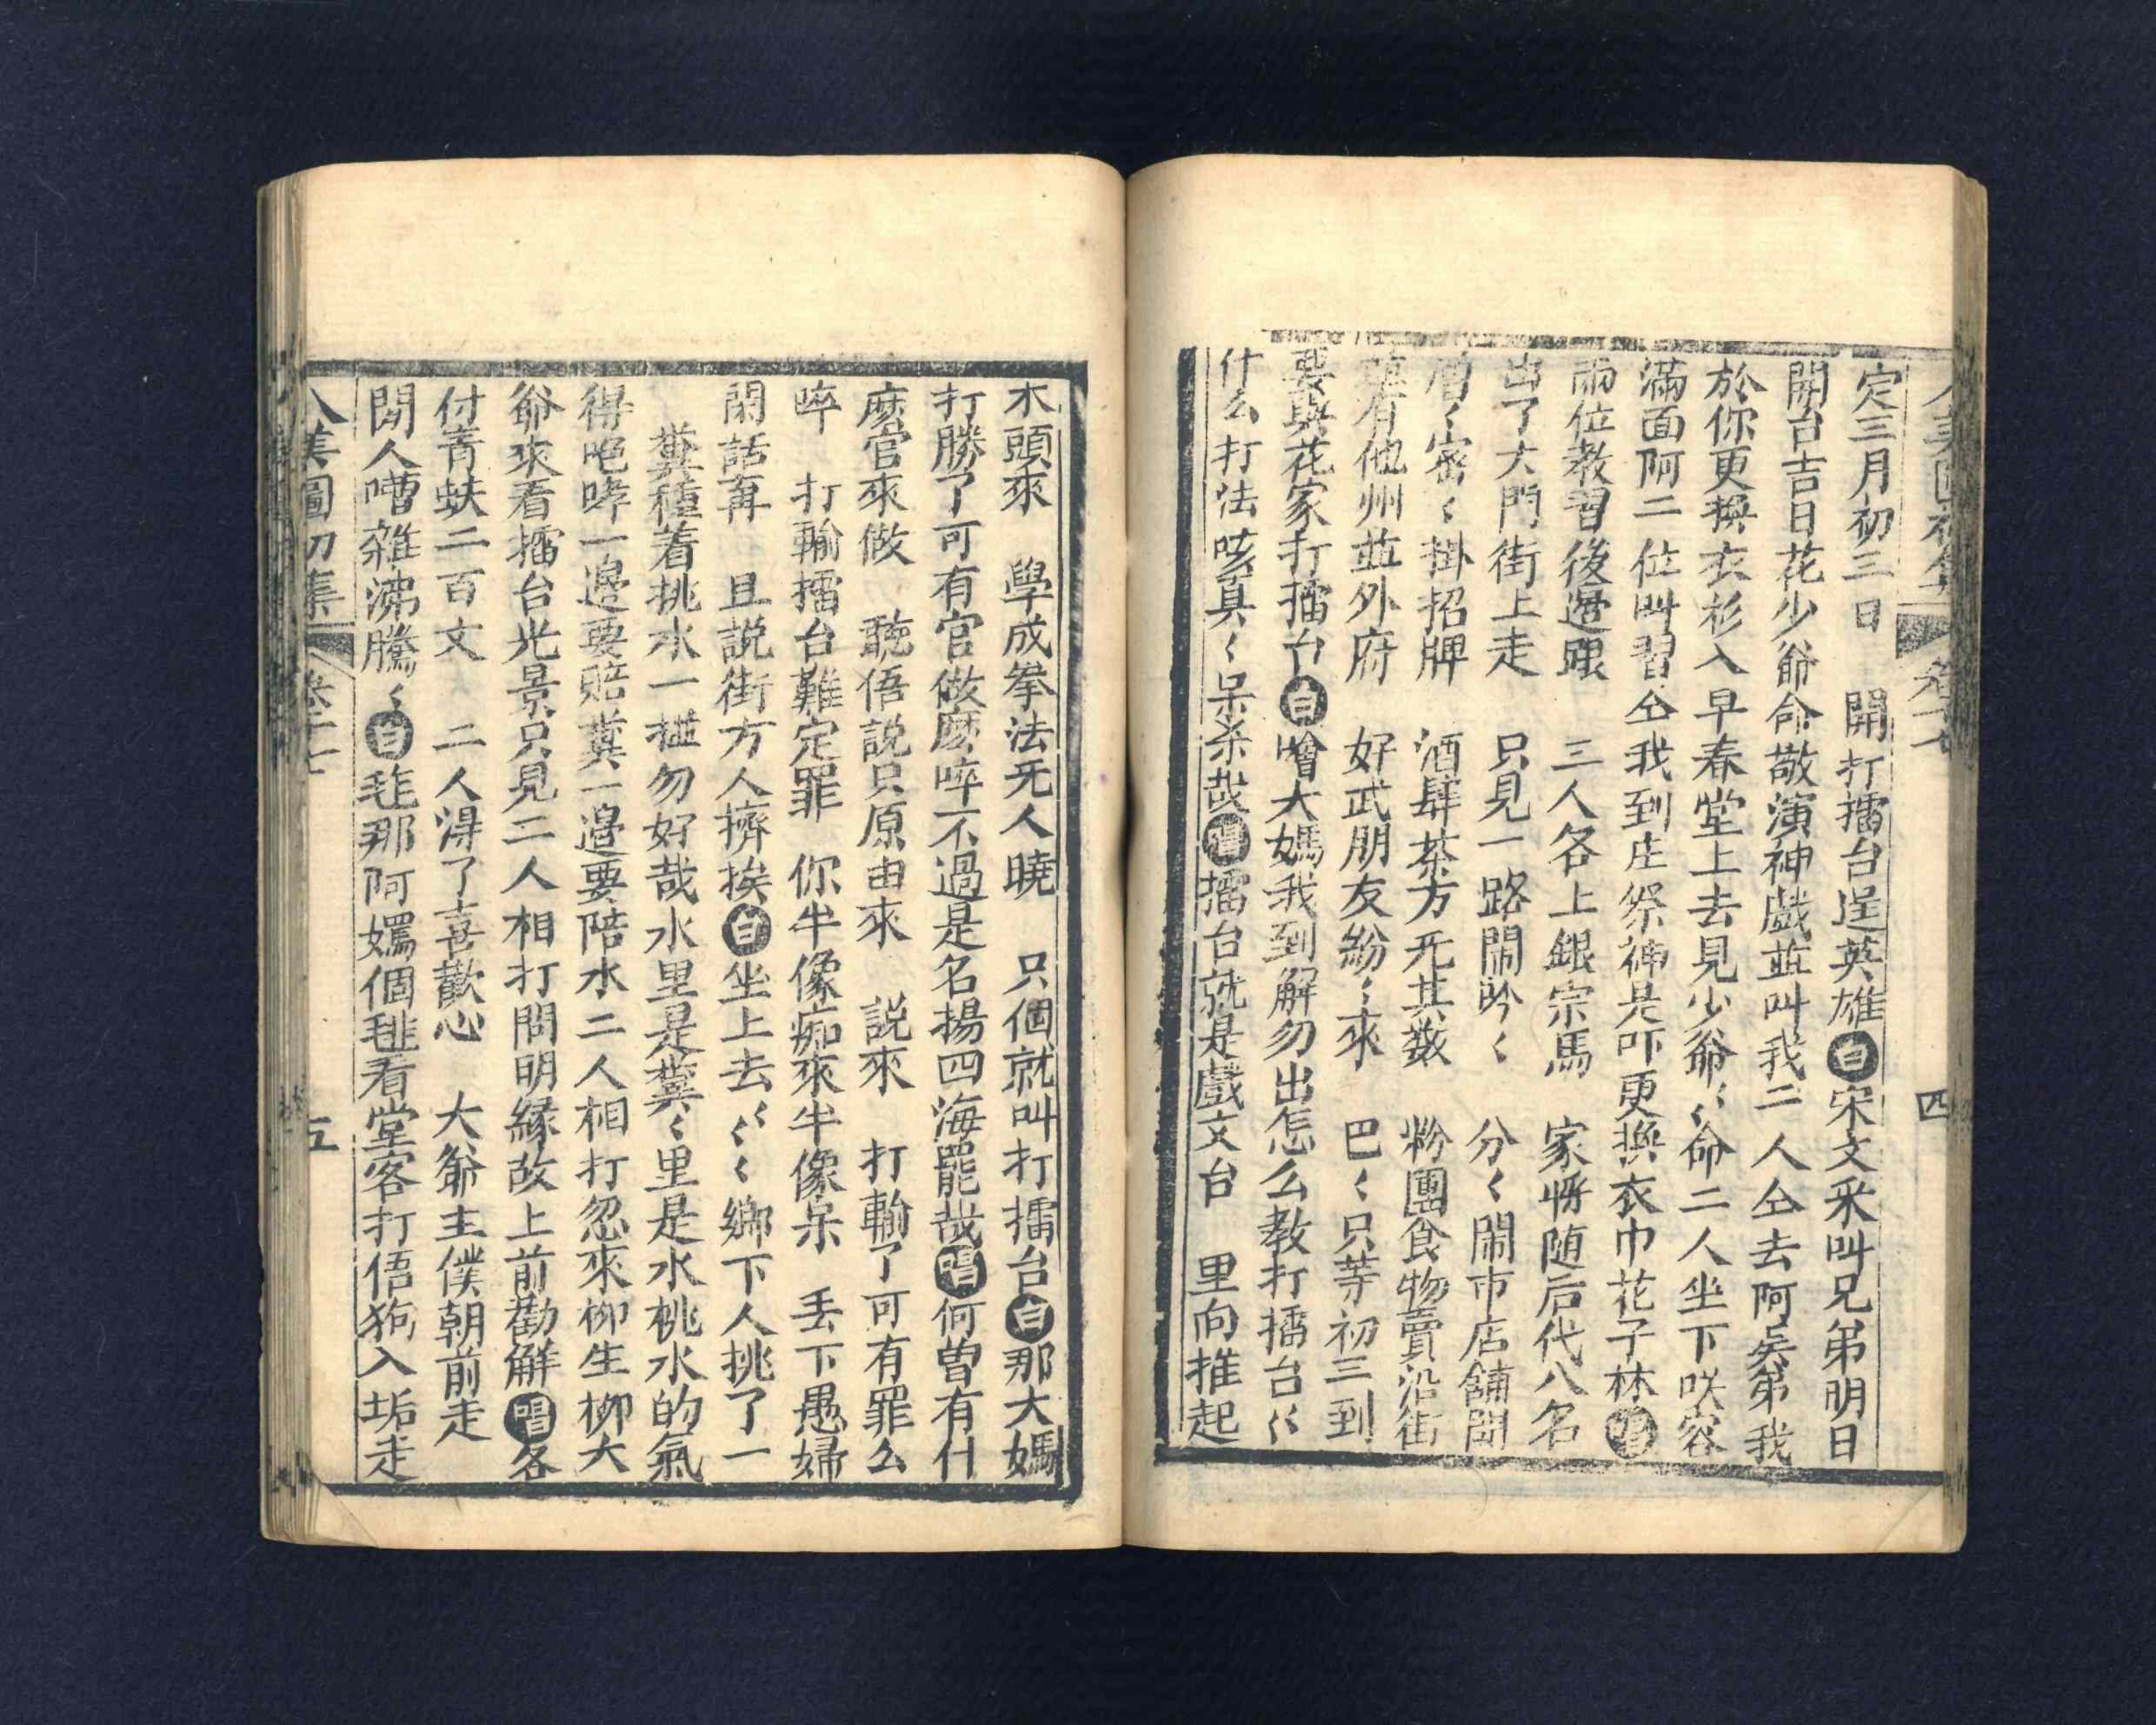 定三月初三日　開打擂台逞英雄白宋文采叫兄弟明日
開台吉日花少爺命敬演神戲並叫我二人仝去阿吳弟我
於你更換衣衫入早春堂上去見少爺〻命二人坐下咲容
滿面阿二位叫習仝我到庄祭神是吓更換衣巾花子林唱
兩位教習後邊跟　三人各上銀宗馬　家將随后代八名
出了大門街上走　只見一路鬧吟〻　分〻鬧市店舖開
層〻密〻掛招牌　酒肆茶方旡其数　粉團食物賣沿街
他州並外府　好武朋友紛〻來　巴〻只等初三到
要與花家打擂台白噲大媽我到解勿出怎么教打擂台〻
什么打法咳真〻呆杀哉唱擂台就是戲文台　里向推起
木頭來　學成拳法旡人曉　只個就叫打擂台白那大媽
打勝了可有官做麽啐不過是名揚四海罷哉唱何曽有什
麽官來做　聽俉説只原由來　説來　打輸了可有罪么
啐　打輸擂台難定罪　你半像痴來半像呆　丢下愚婦
閑話再　且説街方人擠挨白坐上去〻〻〻鄉下人挑了一
糞種着挑水一搵勿好哉水里是糞〻里是水桃水的氣
得咆哮一邉要賠糞一邉要陪水二人相打忽來柳生柳大
爺來看擂台光景只見二人相打問明緣故上前勸解唱各
付青蚨二百文　二人淂了喜歡心　大爺主僕朝前走
閙人嘈雜沸騰〻白毴那阿嬷個毴看堂客打俉狗入垢走
八美圖初集　卷十七　五